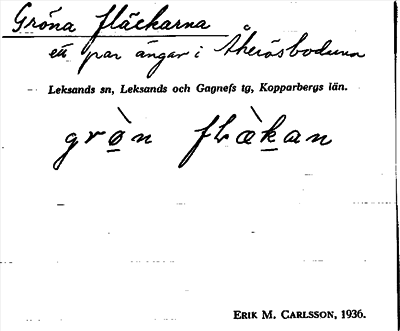 Gröna fläckarna
ett par ängar i Åkeråsbodarna
Leksands sn, Leksands och Gagnefs tg, Kopparbergs län.
grò̱n fLæ̀ḵan
ERIK M. CARLSSON, 1936.